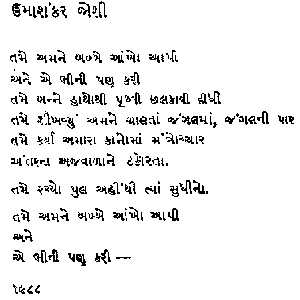 ઉમાશંકર જોશી
તમે અમને બબ્બે આંખો આપી
અને એ ભીની પણ કરી
તમે બન્ને હાથોથી પૃથ્વી છલકાવી દીધી
તમે શીખવ્યું અમને ચાલતાં જંગલમાં, જંગલની પાર
તમે કર્યા અમારા કાનોમાં મંત્રોચ્ચાર
અંતરના અજવાળાને ટકોરતા.
તમે રચ્યો પુલ અહીંથી ત્યાં સુધીનો.
તમે અમને બબ્બે આંખો આપી
અને
એ ભીની પણ કરી —
૧૯૮૮